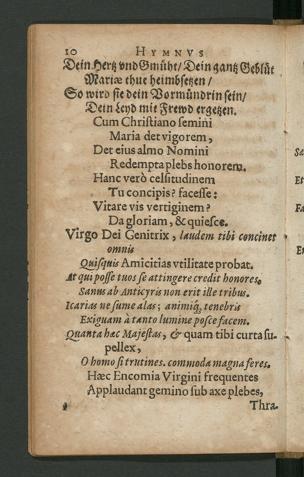 10 HYMNVS
Dein Hertz vnd Gmüht/ Dein gantz Geblüt
Mariæ thue heimbsetzen/
So wird sie dein Vormündrin sein/
Dein Leyd mit Frewd ergetzen.
Cum Christiano semini
Maria det vigorem,
Det eius almo Nomini
Redempta plebs honorem.
Hanc verò celsitudinem
Tu concipis? facesse:
Vitare vis vertiginem?
Da gloriam, & quiesce.
Virgo Dei Genitrix, laudem tibi concinet
omnis
Quisquis Amicitias vtilitate probat.
At qui posse tuos se attingere credit honores,
Sanus ab Anticyris non erit ille tribus.
Icarias ne sume alas; animiq́, tenebris
Exiguam à tanto lumine posce facem.
Quanta hæc Majestas, & quam tibi curta su-
pellex,
O homo si trutines. commoda magna feres.
Hæc Encomia Virgini frequentes
Applaudant gemino sub axe plebes,
Thra-